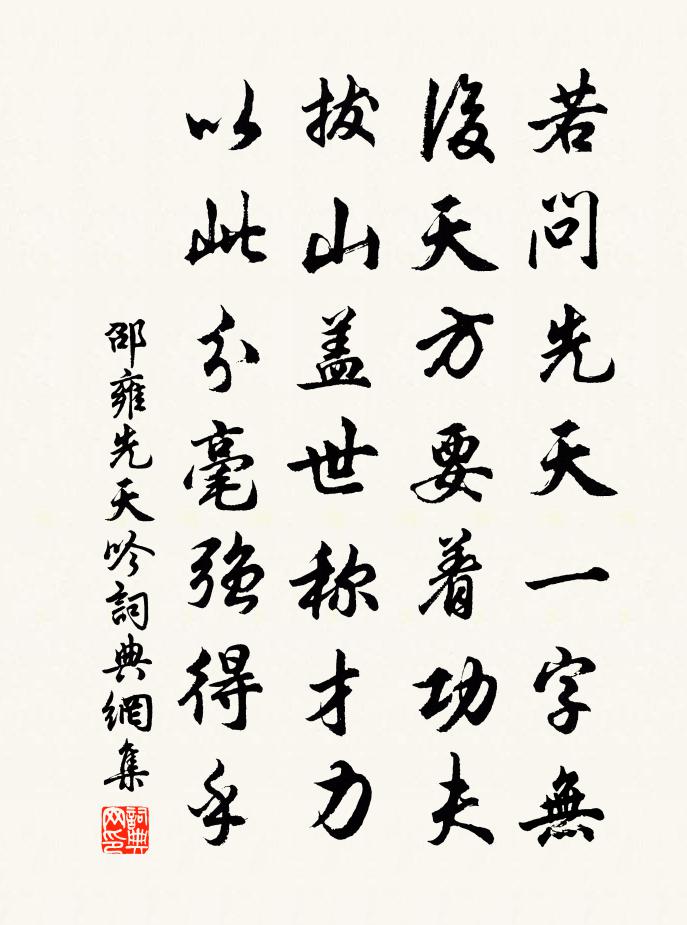 若問先天一字無
後天方要着功夫
拔山盖世称才力
以此分毫強得乎
邵雍先天吟詞典網集
詞典
网印